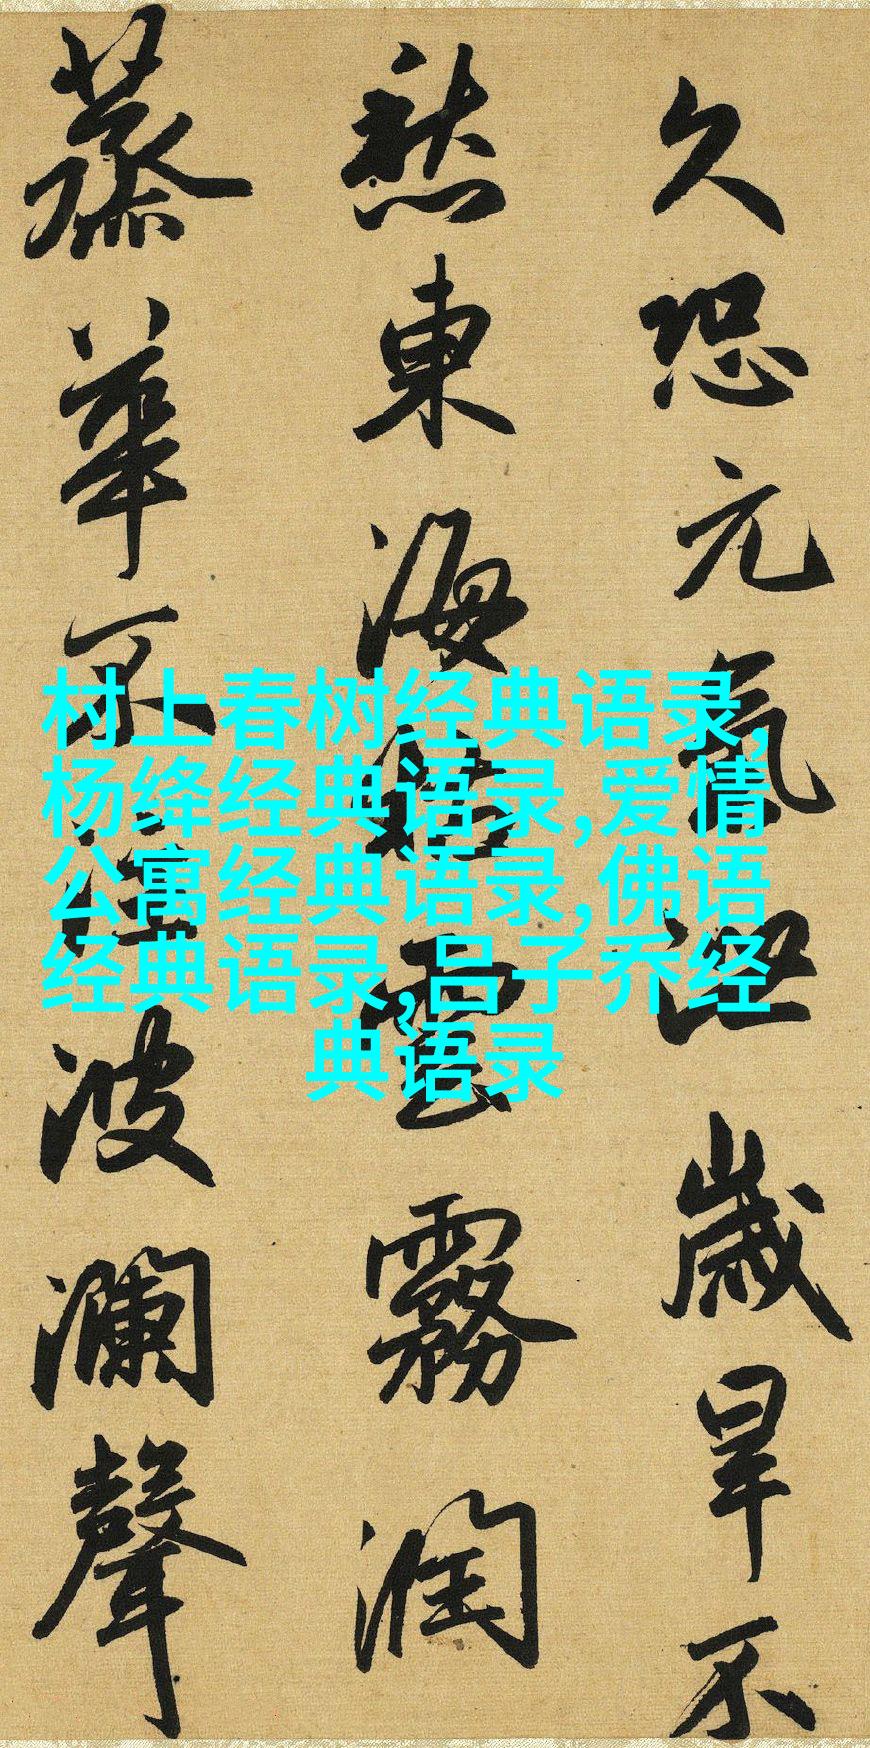 久恐元氣泄歲旱不
愁東海枯雲霧潤
蒸華不注波瀾聲
村上春树经典语录,
杨绛经典语录,爱情
公寓经典语录,佛语
经典语录,吕子乔经
典语录